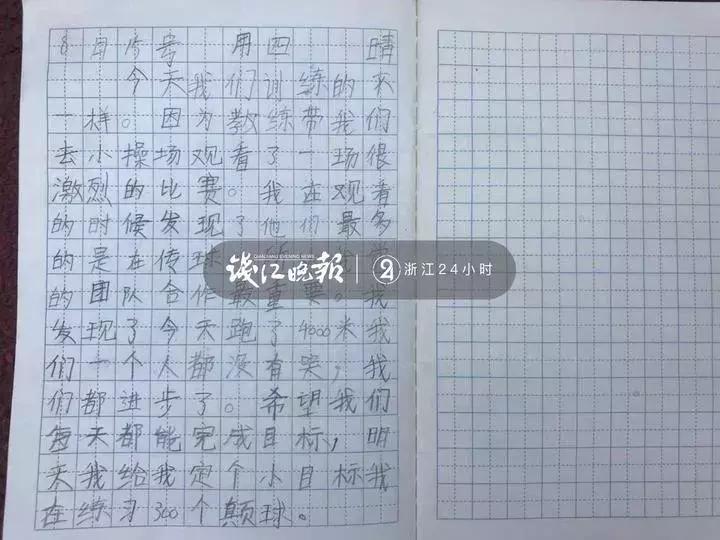 8月15号 用四 晴
今天我们训练的不
一样。因为教练带我们
去小操场观看了一场很
激烈的比赛。我在观看
的时候发现了他们最多
的是在传球
钱江晚报
QIANJIANG EVENING NEWS
浙江24小时
的团队合作最重要。我
发现了今天跑了4000米我
们一个人都没有哭，我
们都进步了。希望我们
每天都能完成目标，明
天我给我定个小目标我
在练习300个颠球。